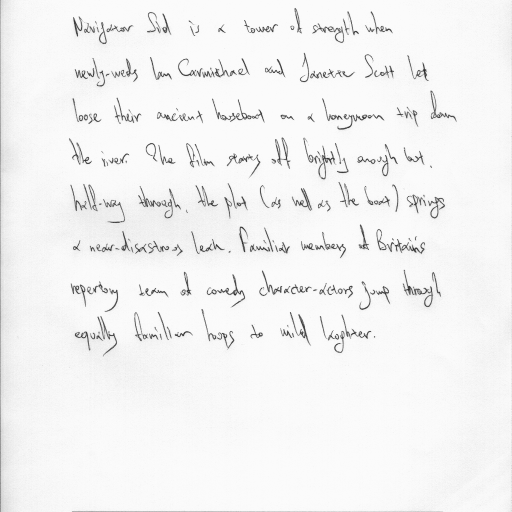 Navigator Sid is a tower of strength when
newly-weds Ian Carmichael and Janette Scott let
loose their ancient houseboat on a honeymoon trip down
the river. The film starts off brightly enough but,
half-way through, the plot (as well as the boat) springs
a near-disastrous leak. Familiar members of Britain's
repertory team of comedy character-actors jump through
equally familiar hoops to mild laughter.